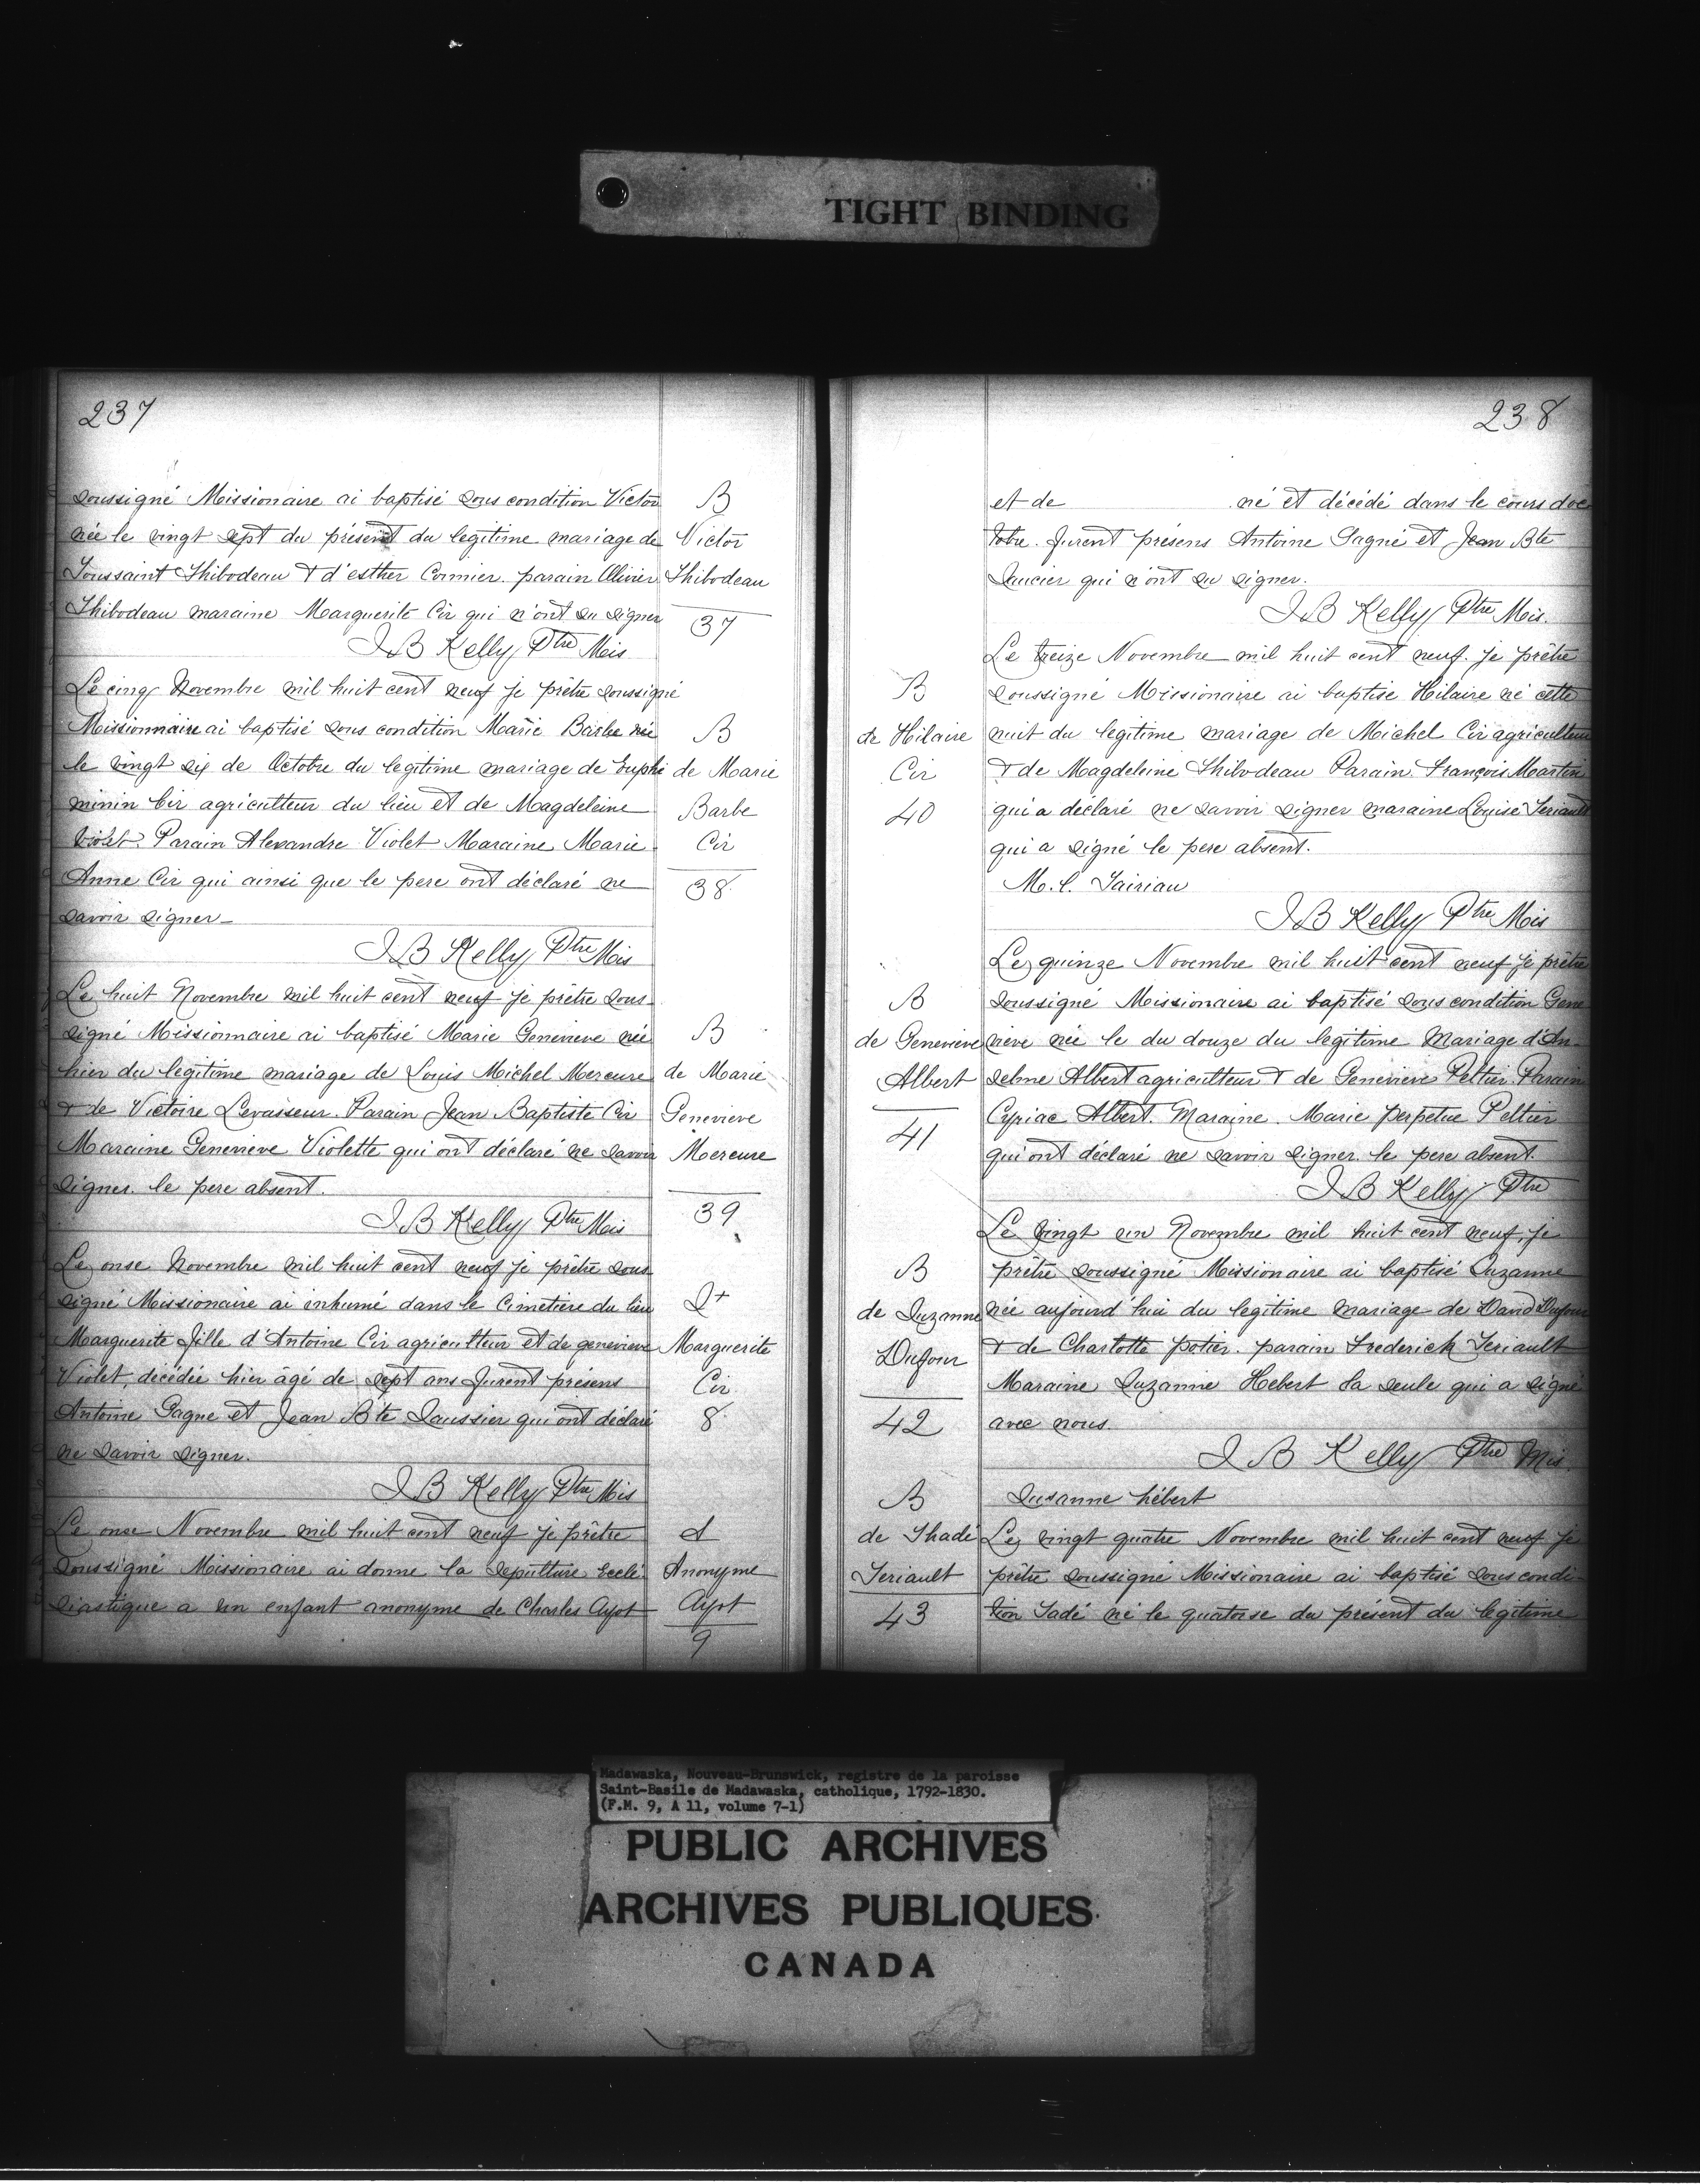 TIGHT BINDING
237
soussigné Missionaire ai baptisé sous condition Victor
née le vingt sept du présent du legitime mariage de
Toussaint Thibodeau & d'esther Cormier. parain Olivier
Thibodeau maraine Marguerite Cir qui n'ont su signer
J B Kelly Ptre Mis
B
Victor
Thibodeau
37
Le cinq Novembre mil huit cent neuf je prêtre soussigné
Missionnaire ai baptisé sous condition Marie Barbe née
le vingt six de Octobre du legitime mariage de Euphe
minin Cir agriculteur du lieu et de Magdeleine
Violet Parain Alexandre Violet Maraine Marie
Anne Cir qui ainsi que le pere ont déclaré ne
savoir signer
J B Kelly Ptre Mis
B
de Marie
Barbe
Cir
38
Le huit Novembre mil huit cent neuf je prêtre sous
signé Missionnaire ai baptisé Marie Genevieve née
hier du legitime mariage de Louis Michel Mercure
& de Victoire Levasseur. Parain Jean Baptiste Cir
Maraine Genevieve Violette qui ont déclaré ne savoir
signer. le pere absent.
J B Kelly Ptre Mis
B
de Marie
Genevieve
Mercure
39
Le onse Novembre mil huit cent neuf je prêtre sous
signé Missionaire ai inhumé dans le Cimetiere du lieu
Marguerite fille d'Antoine Cir agriculteur et de genevieve
Violet, décédée hier âgé de sept ans furent présens
Antoine Gagne et Jean Bte Saussier qui ont déclaré
ne savoir signer.
J B Kelly Ptre Mis
S+
Marguerite
Cir
8
Le onse Novembre mil huit cent neuf je prêtre
soussigné Missionaire ai donne la sepulture Ecclé
siastique a un enfant anonyme de Charles Ayot
S
Anonyme
Ayot
9
238
et de né et décédé dans le cours doc
tobre. furent présens Antoine Gagné et Jean Bte
Saucier qui n'ont su signer.
J B Kelly Ptre Mis.
Le treize Novembre mil huit cent neuf. je prêtre
soussigné Missionaire ai baptise Hilaire né cette
nuit du legitime mariage de Michel Cir agriculteur
& de Magdeleine Thibodeau Parain François Martin
qui a déclaré ne savoir signer maraine Louise Teriault
qui a signé le pere absent.
M. L. Tairiau
J B Kelly Ptre Mis
B
de Hilaire
Cir
40
Le quinze Novembre mil huit cent neuf je prêtre
soussigné Missionaire ai baptisé sous condition Gene
vieve née le du douze du legitime Mariage d'An
selme Albert agriculteur & de Genevieve Peltier Parain
Cyriac Albert. Maraine. Marie perpetue Peltier
qui ont déclaré ne savoir signer. le pere absent.
J B Kelly Ptre
B
de Genevieve
Albert
41
Le vingt un Novembre mil huit cent neuf, je
prêtre soussigné Missionaire ai baptisé Suzanne
née aujourd'hui du legitime mariage de David Dufour
& de Charlotte potier. parain Frederick Teriault
Maraine Suzanne Hebert la seule qui a signé
avec nous.
J B Kelly Ptre Mis.
Susanne hébert
B
de Suzanne
Dufour
42
Le vingt quatre Novembre mil huit cent neuf je
prêtre soussigné Missionaire ai baptisé sous condi
tion Tadé né le quatorse du présent du legitime
B
de Thadé
Teriault
43
Madawaska, Nouveau-Brunswick, registre de la paroisse
Saint-Basile de Madawaska, catholique, 1792-1830.
(F.M. 9, A 11, volume 7-1)
PUBLIC ARCHIVES
ARCHIVES PUBLIQUES
CANADA